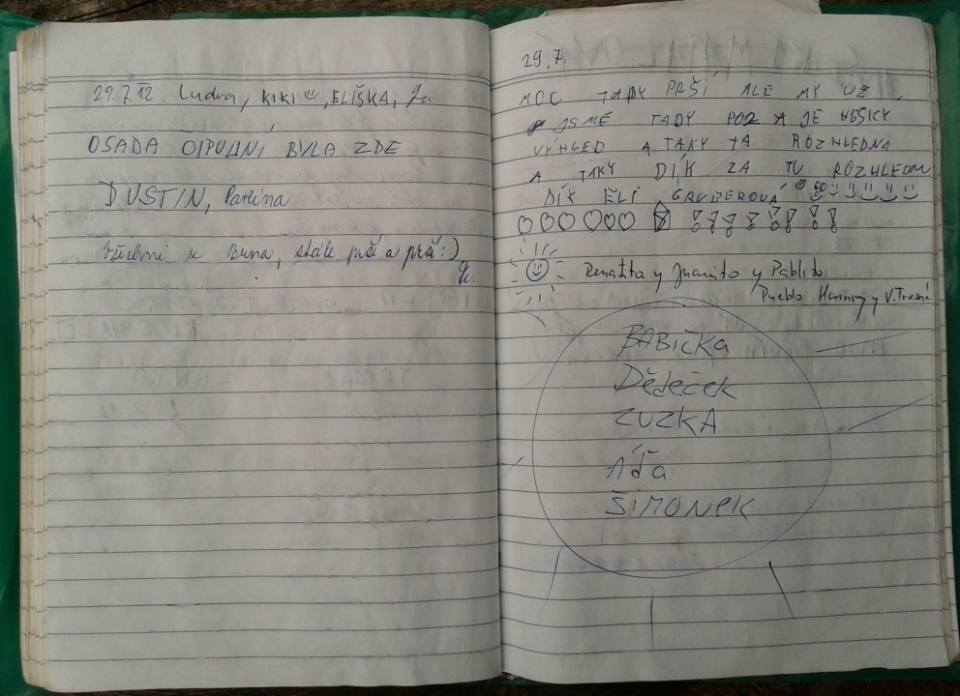 29.7.12 Luďka, KIKI, ELIŠKA,
OSADA BYLA ZDE
DUSTIN, Pavlína
z Brna, stále prší a prší :)
29.7.
MOC TADY PRŠÍ ALE MY UŽ
JSME TADY POZ A JE HEŠKY
VÝHLED A TAKY TA ROZHLEDNA
A TAKY DÍK ZA TU ROZHLEDNU
DÍK ELI GRUBEROVÁ
Renatita y Juanito y Pablito
Pueblo y V.
BABička
Dědeček
ZUZKA
Áďa
ŠIMONEK